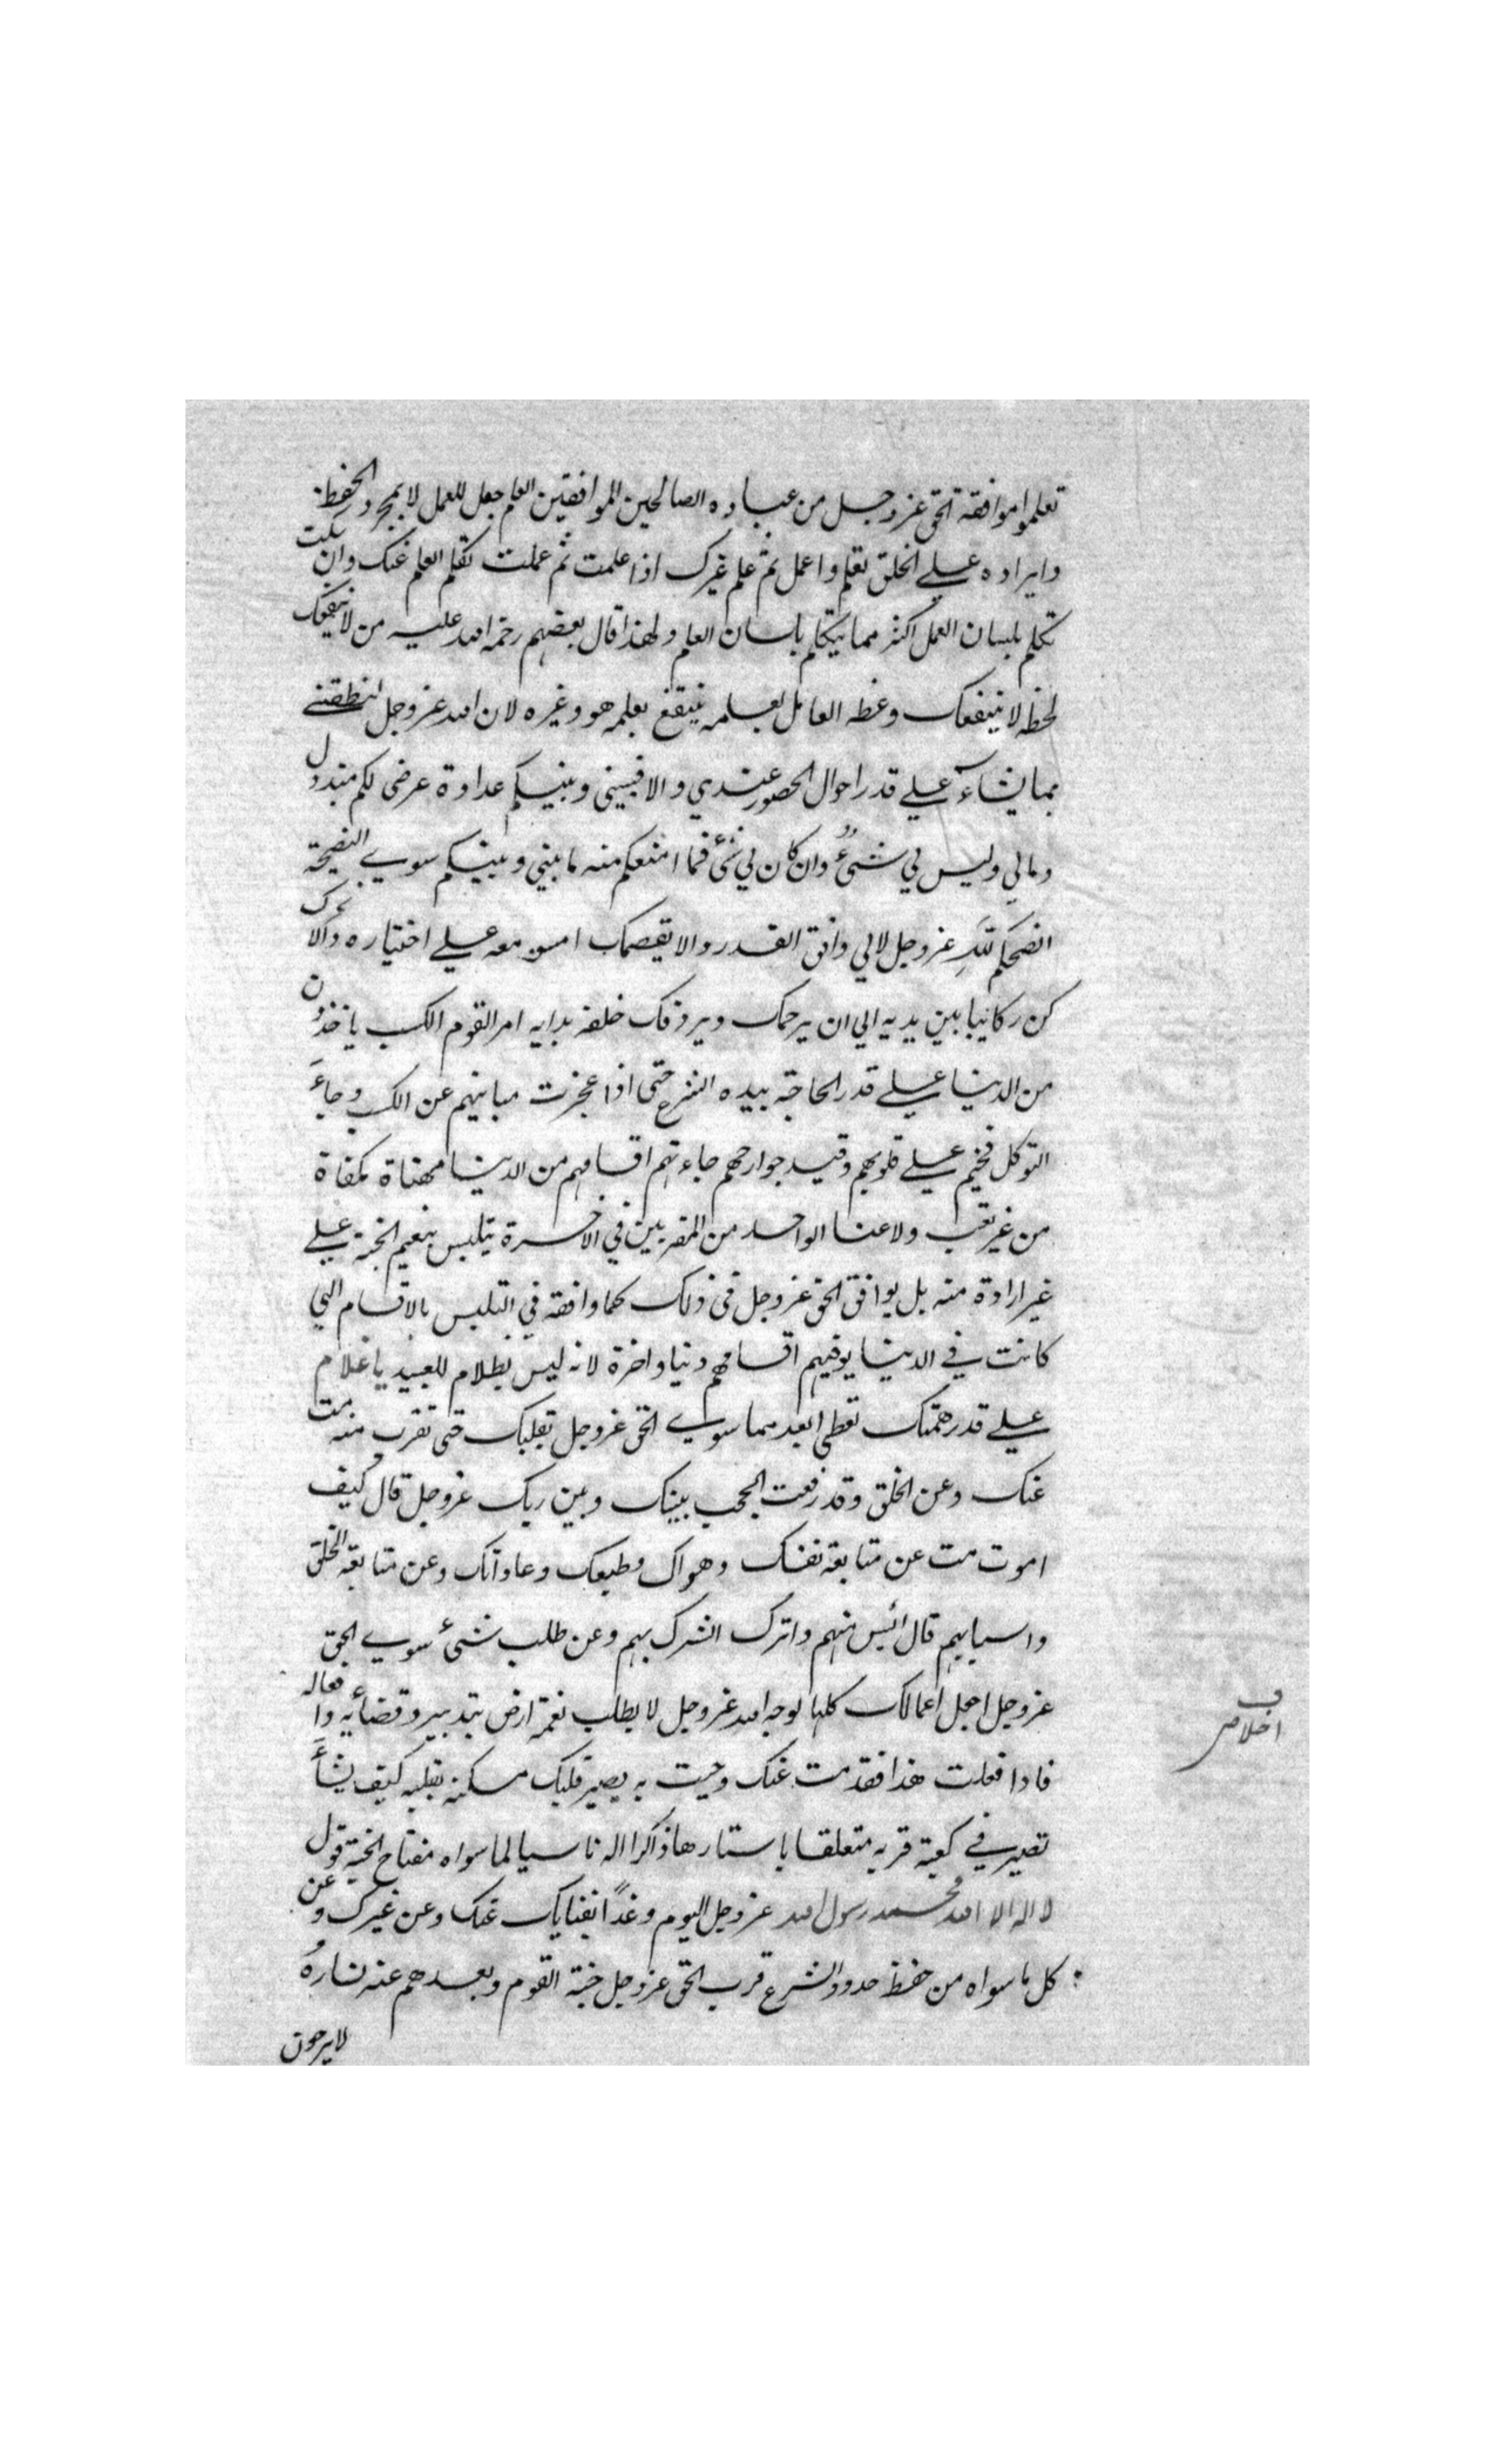 تعلموا موافقة الحق عزوجل من عباده الصالحين الموافقين العلم جعل للعمل لا بمجرد الحفظ
وايراده علے الخلق تعلم واعمل ثم علم غيرك اذا علمت ثم عملت تكلم العلم عنك وان سكت
تكلم بلسان العمل اكثر مما يتكلم بلسان العلم ولهذا قال بعضهم رحمة الله عليه من لا ينفعك
لحظه لا ينفعك وعظه العامل بعلمه ينتفع بعلمه هو وغيره لان الله عزوجل
بما يشاء علے قدر احوال الحضور عندي والا فبيني وبينكم عداوة عرضى لكم مبذول
ومالي وليس لي شئ وان كان لي شئ فما امنعكم منه ما بيني وبينكم سوے النصيحة
انصحكم للّه عزوجل لا لي وافق القدر والا يقصمك امش معه علے اختياره والا
كن بين يديه الي ان يرحمك ويردفك خلفه بداية امر القوم الكسب ياخذون
من الدنيا علے قدر الحاجة بيده الشرع حتى اذا عجزت مبانيهم عن الكسب وجاء
التوكل فخيم علے قلوبهم وقيد جوارحهم جاءتهم اقسامهم من الدنيا مهناة مكفاة
من غير تعب ولا عنا الواحد من المقربين في الاخرة يتلبس بنعيم الجنة علے
غير ارادة منه بل يوافق الحق عزوجل في ذلك كما وافقه في التلبس بالاقسام التي
كانت في الدنيا يوفيهم اقسامهم دنيا واخرة لانه ليس بظلام للعبيد يا غلام
علے قدر همتك تعطى ابعد مما سوے الحق عزوجل بقلبك حتى تقرب منه مت
عنك وعن الخلق وقد رفعت الحجب بينك وبين ربك عزوجل قال كيف
اموت مت عن متابعة نفسك وهواك وطبعك وعاداتك وعن متابعة الخلق
واسبابهم قال ائيس منهم واترك الشرك بهم وعن طلب شئ سوے الحق
عزوجل اجعل اعمالك كلها لوجه الله عزوجل لا بطلب نعمة ارض بتدبيره وقضائه وافعاله
فاذا فعلت هذا فقد مت عنك وحييت به يصير قلبك مسكنه يقلبه كيف يشاء
تصير في كعبة قربه متعلقا باستارها ذاكرا له ناسيا لما سواه مفتاح الجنة قول
لا اله الا الله محمد رسول الله عزوجل اليوم وغدًا بفنايك عنك وعن غيرك وعن
كل ما سواه من حفظ حدود الشرع قرب الحق عزوجل جنة القوم وبعدهم عنه نارهُ
لا يرجون
ف
اخلاص